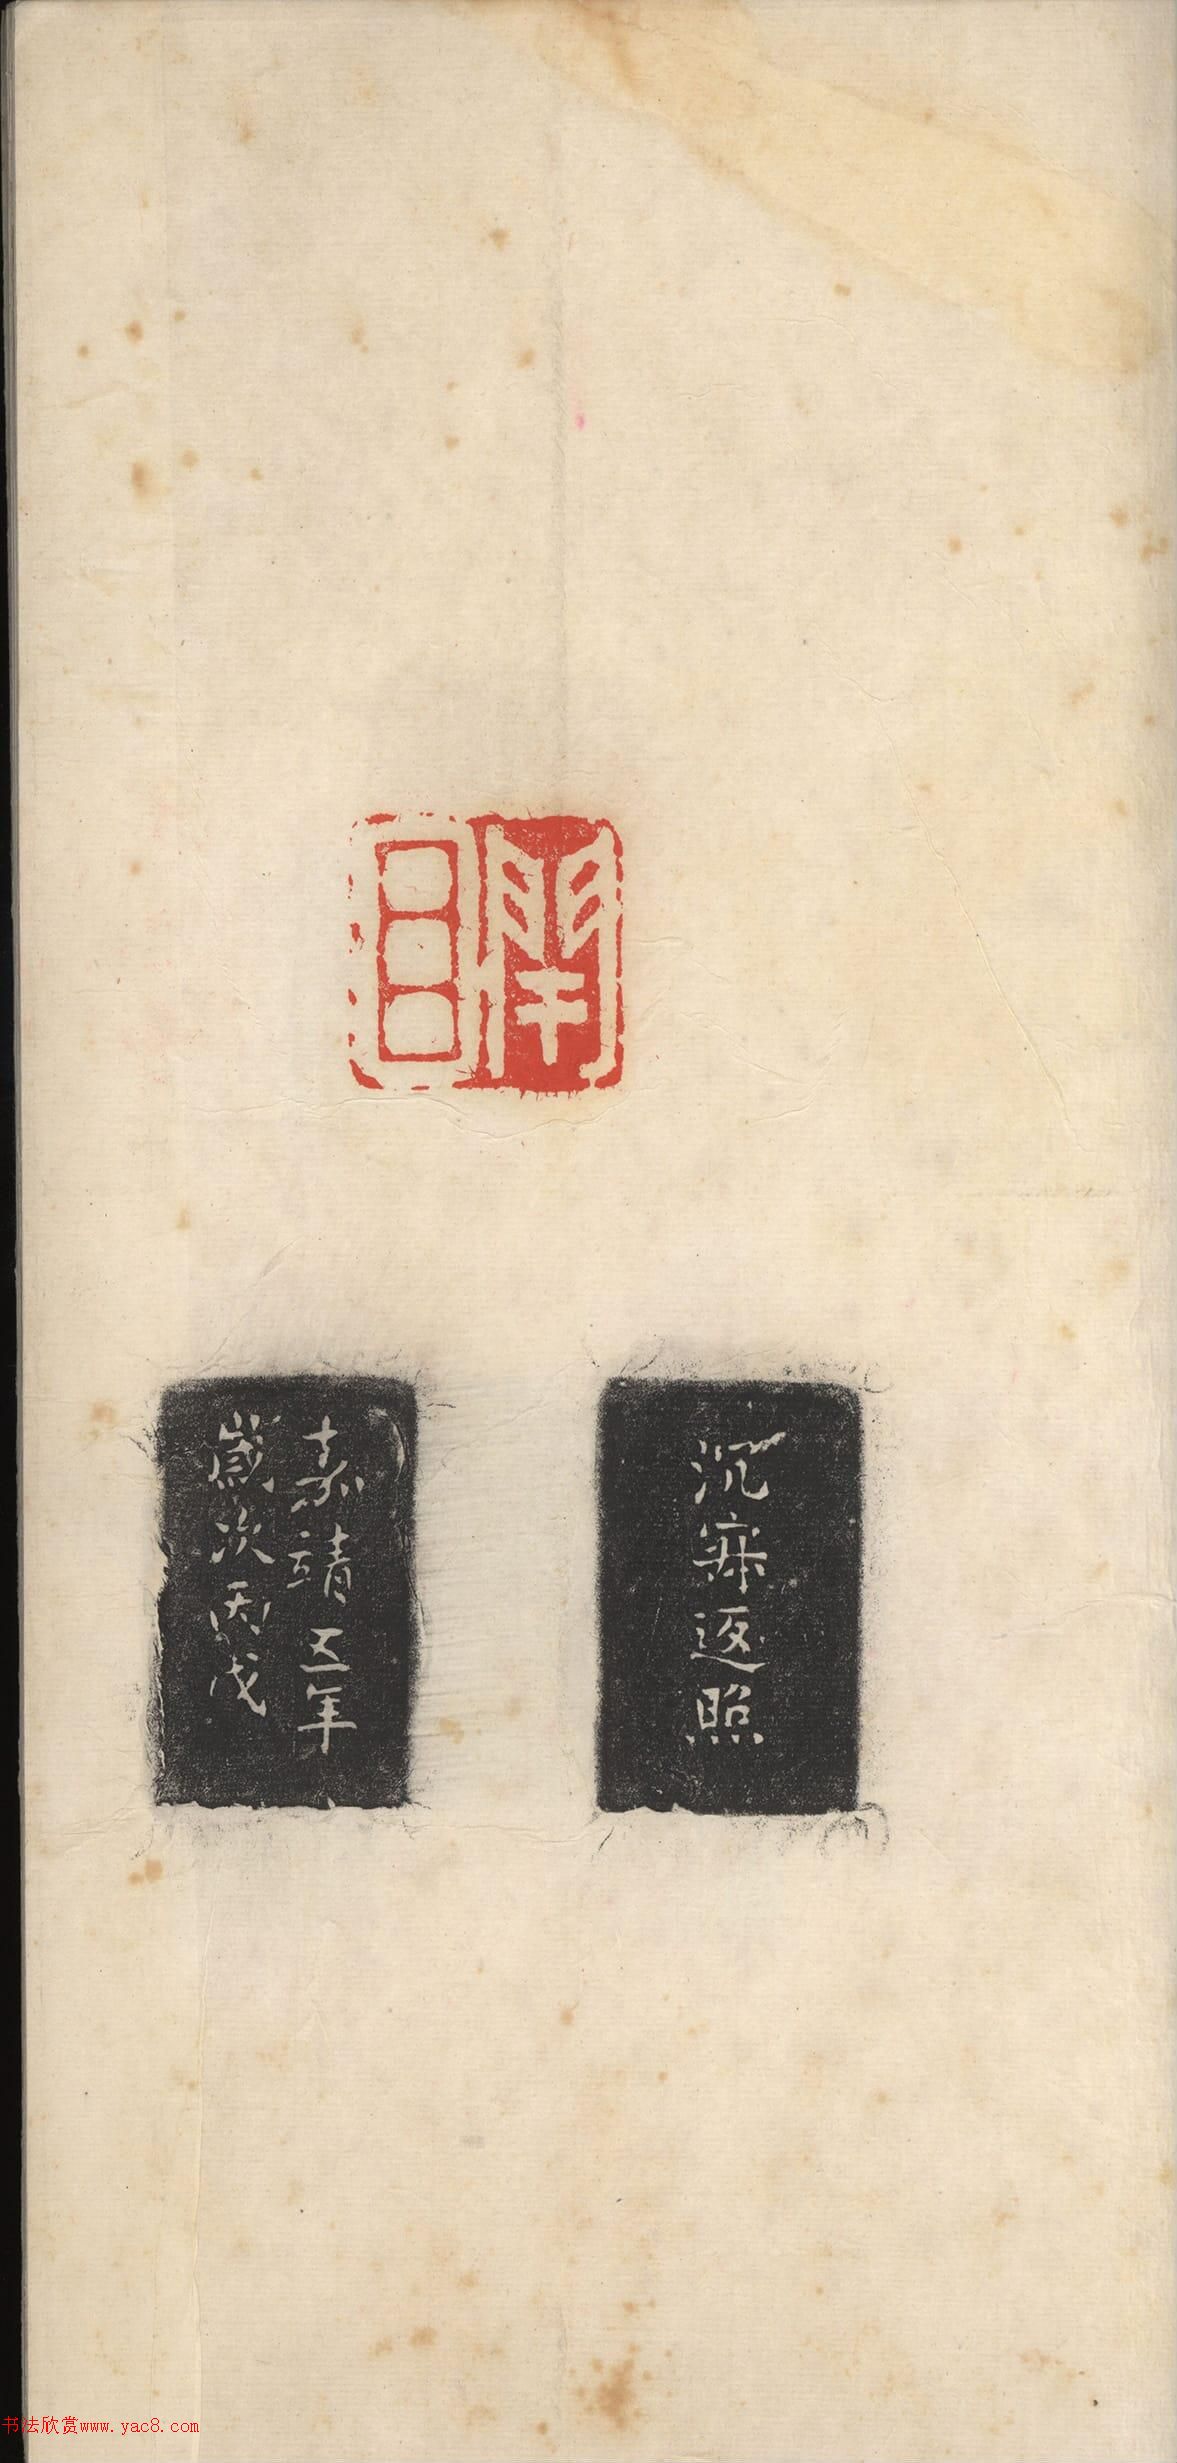 沉寐返照
嘉靖五年
歲次丙戌
书法欣赏www.yac8.com